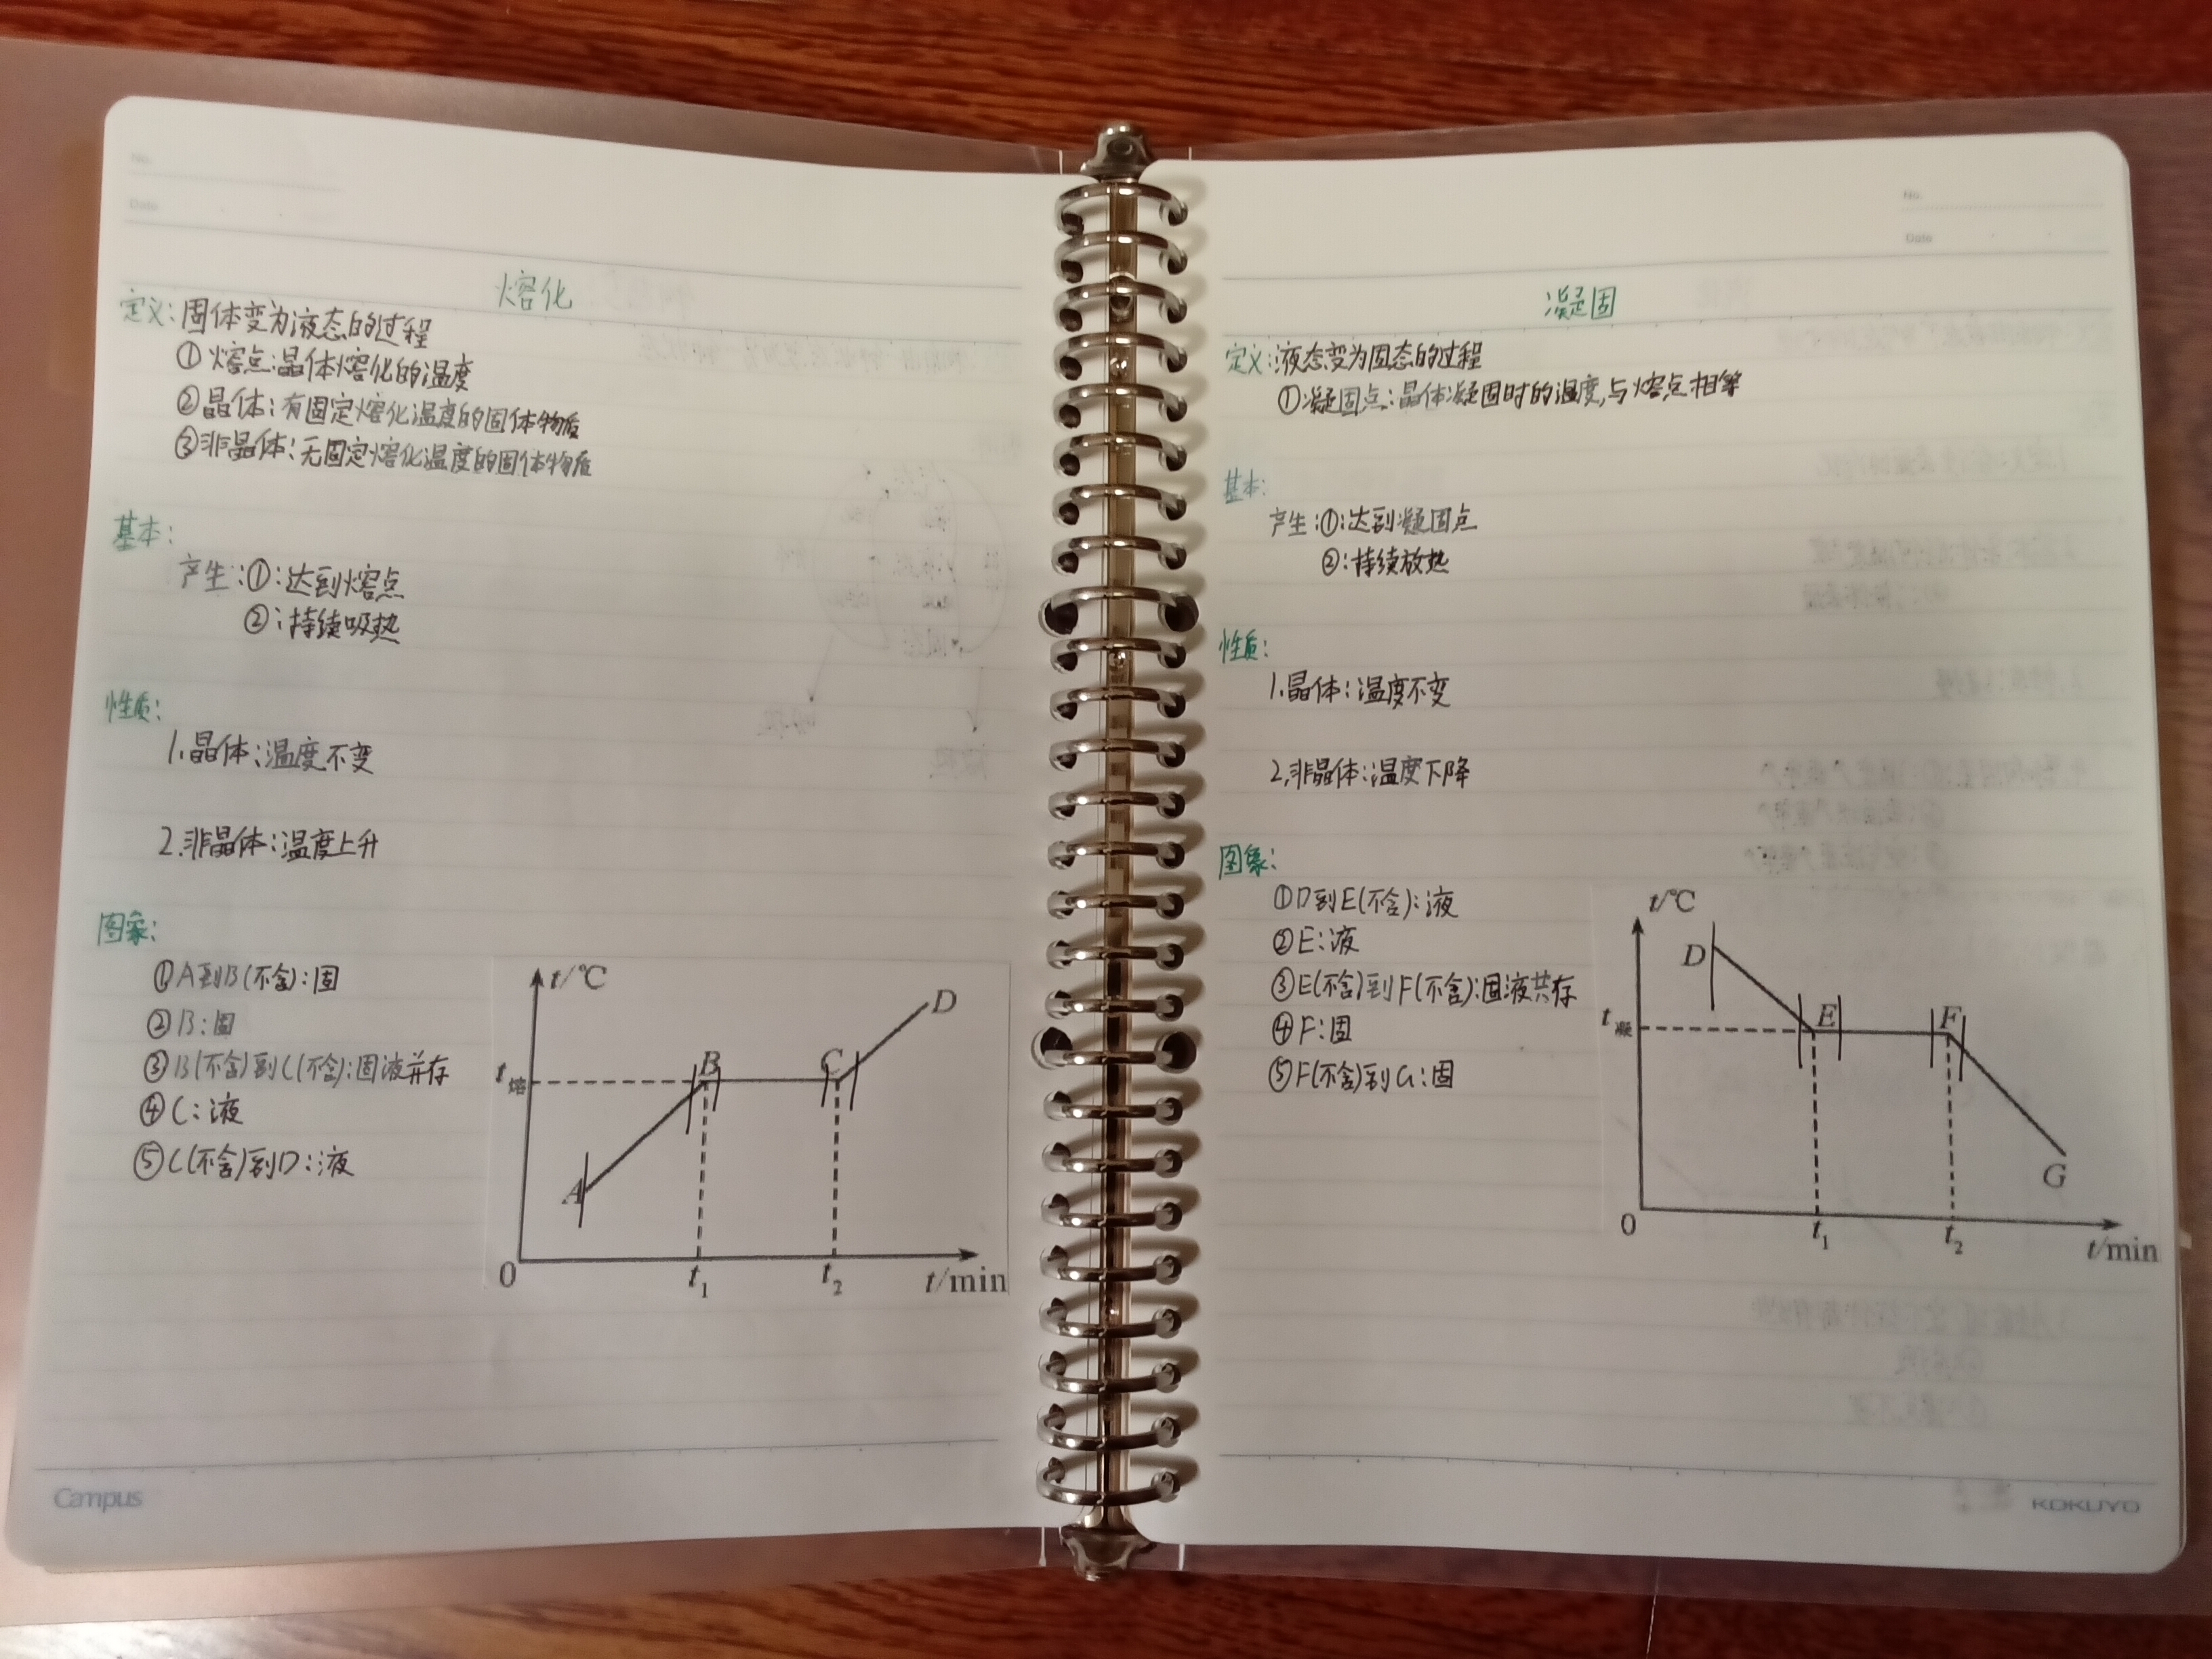 No.
Date
熔化
定义:固体变为液态的过程
①熔点:晶体熔化的温度
②晶体:有固定熔化温度的固体物质
③非晶体:无固定熔化温度的固体物质
基本:
产生:①:达到熔点
②:持续吸热
性质:
1.晶体:温度不变
2.非晶体:温度上升
图象:
①A到B(不含):固
②B:固
③B(不含)到C(不含):固液并存
④C:液
⑤C(不含)到D:液
t/℃
D
B
C
t熔
A
0
t₁
t₂
t/min
Campus
No.
Date
凝固
定义:液态变为固态的过程
①凝固点:晶体凝固时的温度,与熔点相等
基本:
产生:①:达到凝固点
②:持续放热
性质:
1.晶体:温度不变
2.非晶体:温度下降
图象:
①D到E(不含):液
②E:液
③E(不含)到F(不含):固液共存
④F:固
⑤F(不含)到G:固
t/℃
D
E
F
t凝
G
0
t₁
t₂
t/min
KOKUYO